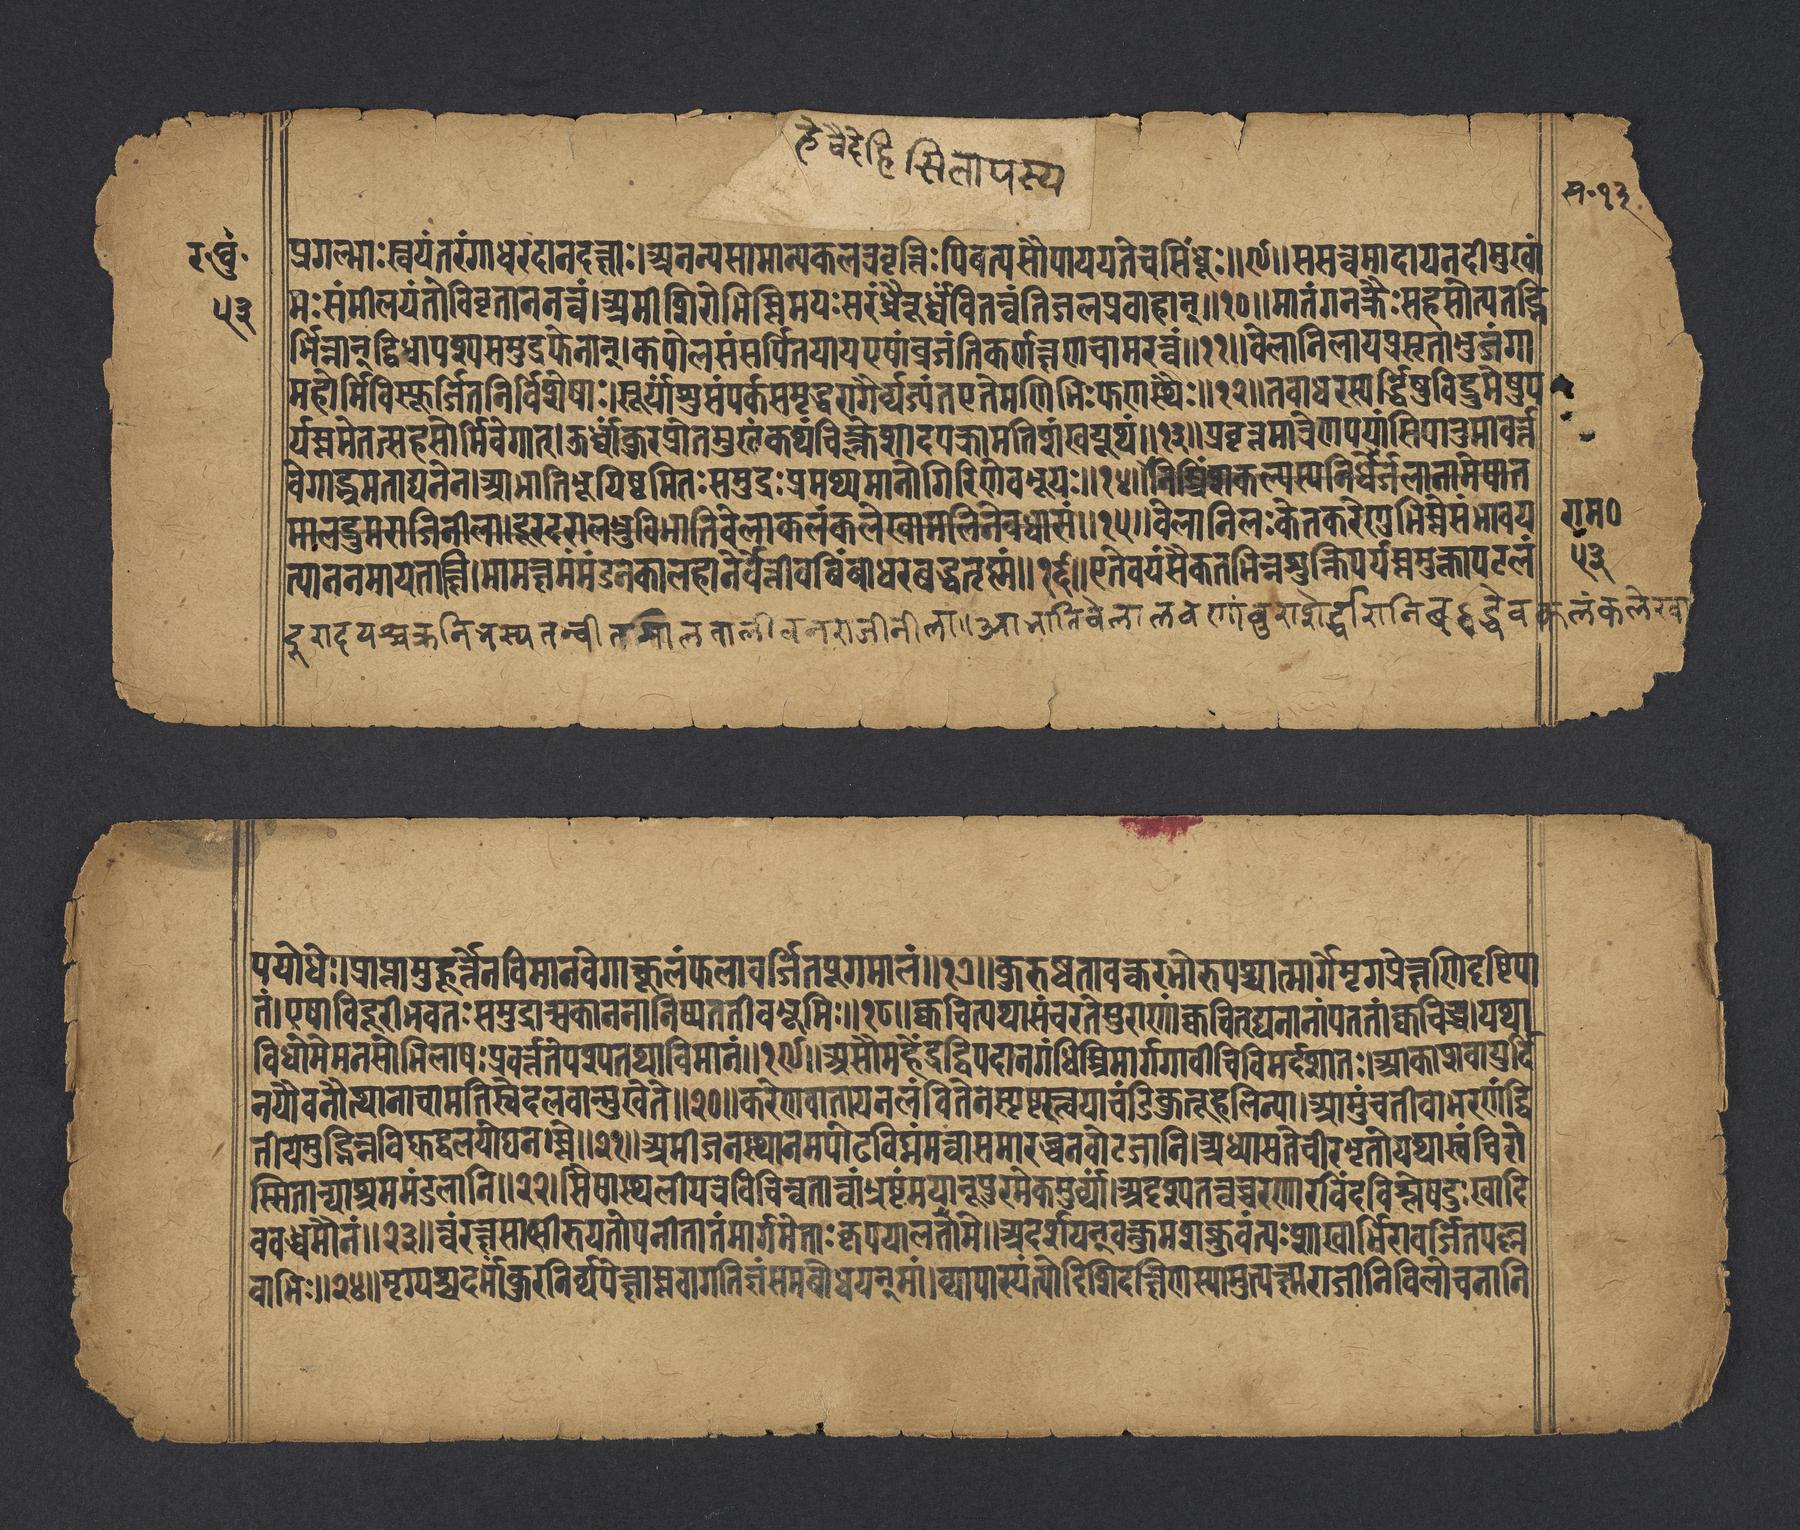 हे वैदेहि सिता पस्य
स॰१३
र॰घुं॰
५३
प्रगल्भाःस्वयंतरंगाधरदानदक्षाः।अनन्यसामान्यकलत्रवृत्तिःपिबत्यसौपाययतेचसिंधूः॥९॥ससत्त्वमादायनदीमुखां
भःसंमीलयंतोविवृताननत्वं।अमीशिरोभिस्तिमयःसरंध्रैनूर्ध्वंवितन्वंतिजलप्रवाहान्॥१०॥मातंगनक्रैःसहसोत्पतद्भि
र्भिन्नान्द्विधापश्यसमुद्रफेनान्।कपोलसंसर्पितयायएषांव्रजंतिकर्णक्षणचामरत्वं॥११॥वेलानिलायप्रसृताभुजंगा
महोर्मिविस्फूर्जितनिर्विशेषाः।सूर्यांशुसंपर्कसमृद्धरागैर्व्यज्यंतएतेमणिभिःफणस्थैः॥१२॥तवाधरस्पर्द्धिषुविद्रुमेषुप
र्यस्तमेतत्सहसोर्मिवेगात्।ऊर्ध्वांकुरप्रोतमुखंकथंचित्क्लेशादपक्रामतिशंखयूथं॥१३॥प्रवृत्तमात्रेणपयांसिपातुमावर्त्त
वेगाद्भ्रमताघनेन।आभातिभूयिष्ठमितःसमुद्रःप्रमथ्यमानोगिरिणेवभूयः॥१४॥
मालद्रुमराजिनीला।दूरदरालभ्रुविभातिवेलाकलंकलेखामलिनेवधारा॥१५॥वेलानिलःकेतकरेणुभिस्तेसंभावय
राम०
५३
त्याननमायताक्षि।मामक्षमंमंडनकालहानेर्वेत्तीवबिंबाधरबद्धतृष्मं॥१६॥एतेवयंसैकतभिन्नशुक्तिपर्यस्तमुक्तापटलं
दूरादयश्चक्रनिभस्यतन्वीतमालतालीवनराजीनीला॥आभातिवेलालवणांबुराशेर्द्धारानिबद्धेवकलंकलेखा
पयोधेः।प्राप्तामुहूर्त्तेनविमानवेगात्कूलंफलावर्जितपूगमालं॥१७॥कुरुष्वतावत्करभोरुपश्चान्मार्गेमृगप्रेक्षणिदृष्टिपा
तं।एषाविदूरीभवतःसमुद्रात्सकानननिष्पततीवभूमिः॥१८॥क्वचित्पथासंचरतेसुराणांक्वचिद्घनानांपततांक्वचिच्च।यथा
विधोमेमनसोभिलाषःप्रवर्त्ततेपश्यतथाविमानं॥१९॥असौमहेंद्रद्विपदानगंधिस्त्रिमार्गगावीचिविमर्दशीतः।आकाशवायुर्दि
नयौवनोत्थानाचामतिस्वेदलवान्मुखेते॥२०॥करेणवातायनलंवितेनस्पृष्टस्त्वयाचंडिकुतूहलिन्या।आमुंचतीवाभरणंद्वि
तीयमुद्भिन्नविद्युद्वलयोघनस्ते॥२१॥अमीजनस्थानमपोढविघ्नंमत्वासमारब्धनवोटजानि।अध्यासतेचीरभृतोयथास्वंचिरो
स्सितान्याश्रममंडलानि॥२२॥सैषास्थलीयत्रविचिन्वतात्वांभ्रष्टंमयानूपुरमेकमुर्व्यां।अदृश्यतत्वच्चरणारविंदविश्लेषदुःखादि
वबद्धमौनं॥२३॥त्वंरक्षसाभीरुयतोपनीतातंमार्गमेताःकृपयालतामे॥अदर्शयन्वक्तुमशक्नुवंत्यःशाखाभिरावर्जितपल्ल
वाभिः॥२४॥मृग्यश्चदर्भांकुरनिर्व्यपेक्षास्तवागतिज्ञंसमबोधयन्मां।व्यापारयंत्योदिशिदक्षिणस्यामुत्पक्ष्मराजीनिविलोचनानि